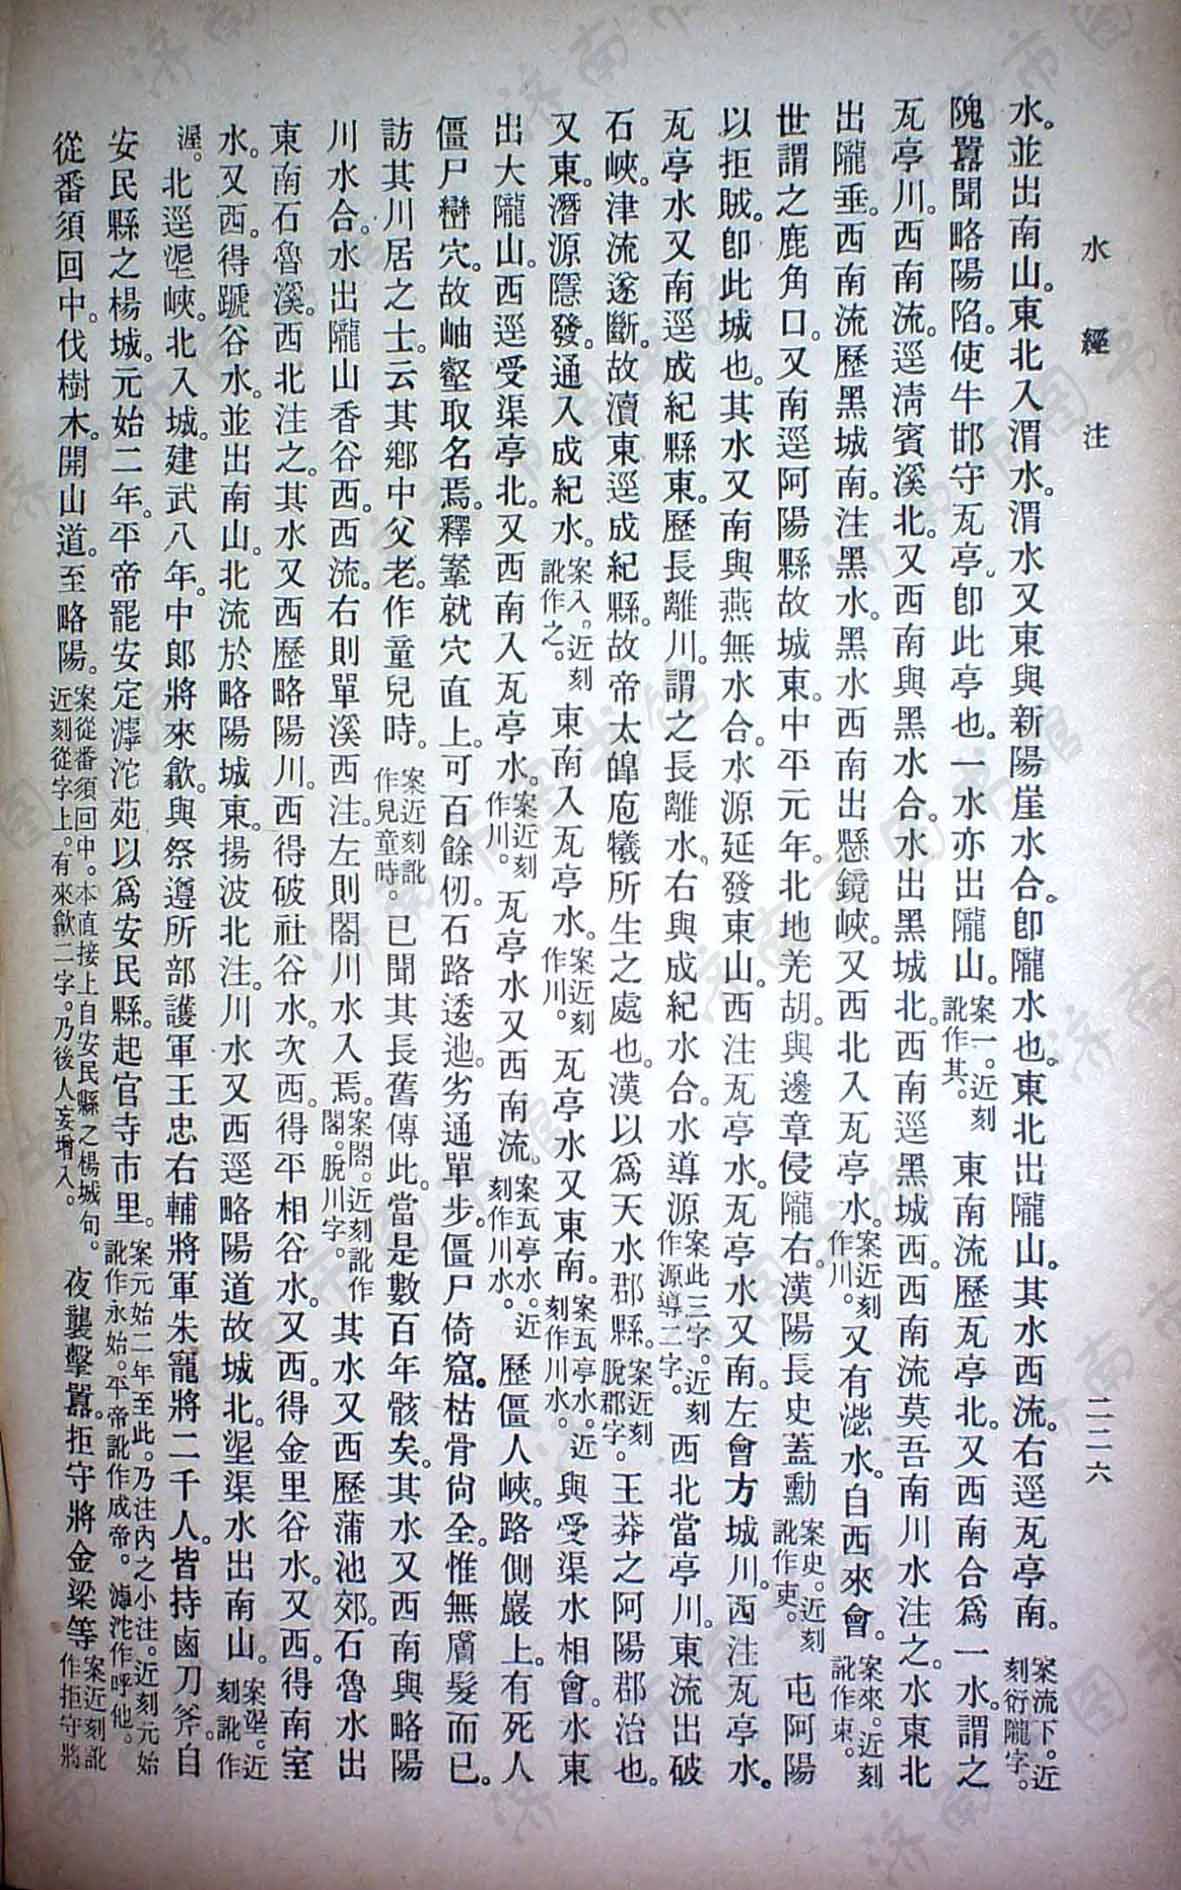 水經注
二二六
水。並出南山。東北入渭水。渭水又東與新陽崖水合。卽隴水也。東北出隴山。其水西流。右逕瓦亭南。案流下。近刻衍隴字。
隗囂聞略陽陷。使牛邯守瓦亭。卽此亭也。一水亦出隴山。案一。近刻訛作其。東南流歷瓦亭北。又西南合爲一水。謂之
瓦亭川。西南流。逕淸賓溪北。又西南與黑水合。水出黑城北。西南逕黑城西。西南流莫吾南川水注之。水東北
出隴垂。西南流歷黑城南。注黑水。黑水西南出懸鏡峽。又西北入瓦亭水。案近刻作川。又有澁水。自西來會。案來。近刻訛作東。
世謂之鹿角口。又南逕阿陽縣故城東。中平元年。北地羌胡。與邊章侵隴右。漢陽長史蓋勳案史。近刻訛作吏。屯阿陽
以拒賊。卽此城也。其水又南與燕無水合。水源延發東山。西注瓦亭水。瓦亭水又南。左會方城川。西注瓦亭水。
瓦亭水又南逕成紀縣東。歷長離川。謂之長離水。右與成紀水合。水導源案此三字。近刻作源導二字。西北當亭川。東流出破
石峽。津流遂斷。故瀆東逕成紀縣。故帝太皡庖犧所生之處也。漢以爲天水郡縣。案近刻脫郡字。王莽之阿陽郡治也。
又東。潛源隱發。通入成紀水。案入。近刻訛作之。東南入瓦亭水。案近刻作川。瓦亭水又東南。案瓦亭水。近刻作川水。與受渠水相會。水東
出大隴山。西逕受渠亭北。又西南入瓦亭水。案近刻作川。瓦亭水又西南流。案瓦亭水。近刻作川水。歷僵人峽。路側巖上。有死人
僵尸巒穴。故岫壑取名焉。釋鞌就穴直上。可百餘仞。石路逶迆。劣通單步。僵尸倚窟。枯骨尙全。惟無膚髮而已。
訪其川居之士。云其鄕中父老。作童兒時。案近刻訛作兒童時。已聞其長舊傳此。當是數百年骸矣。其水又西南與略陽
川水合。水出隴山香谷西。西流。右則單溪西注。左則閣川水入焉。案閣。近刻訛作閣。脫川字。其水又西歷蒲池郊。石魯水出
東南石魯溪。西北注之。其水又西歷略陽川。西得破社谷水。次西。得平相谷水。又西。得金里谷水。又西。得南室
水。又西。得蹏谷水。並出南山。北流於略陽城東。揚波北注。川水又西逕略陽道故城北。浧渠水出南山。案浧。近刻訛作
渥。北逕浧峽。北入城。建武八年。中郎將來歙。與祭遵所部護軍王忠右輔將軍朱寵將二千人。皆持鹵刀斧。自
安民縣之楊城。元始二年。平帝罷安定滹沱苑以爲安民縣。起官寺市里。案元始二年至此。乃注內之小注。近刻元始訛作永始。平帝訛作成帝。滹沱作呼他。
從番須回中。伐樹木。開山道。至略陽。案從番須回中。本直接上自安民縣之楊城句。近刻從字上。有來歙二字。乃後人妄增入。夜襲擊囂。拒守將金梁等案近刻訛作拒守將